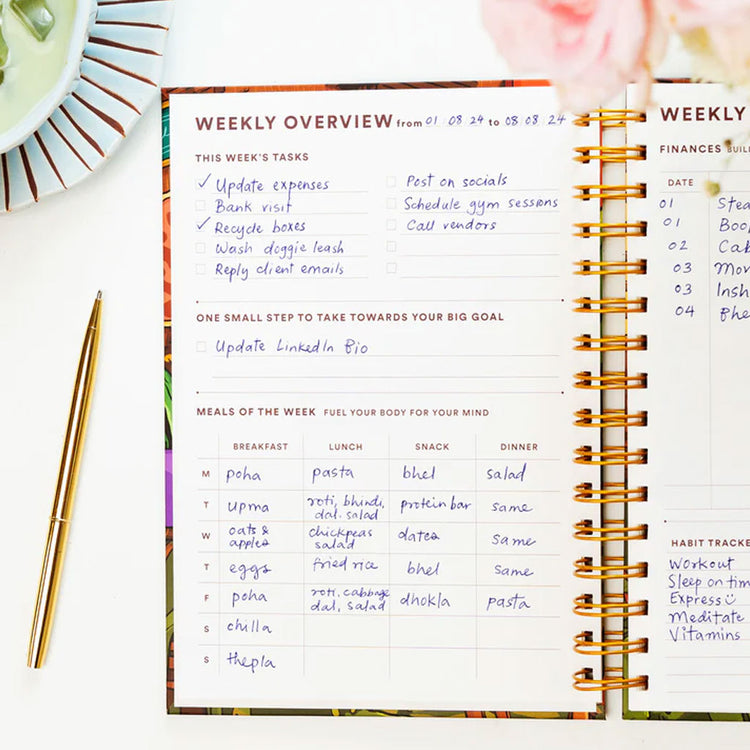 WEEKLY OVERVIEW from 01 08 24 to 08 08 24
THIS WEEK'S TASKS
Update expenses
Bank visit
Recycle boxes
Wash doggie leash
Reply client emails
Post on socials
Schedule gym sessions
Call vendors
ONE SMALL STEP TO TAKE TOWARDS YOUR BIG GOAL
Update LinkedIn Bio
MEALS OF THE WEEK FUEL YOUR BODY FOR YOUR MIND
BREAKFAST LUNCH SNACK DINNER
M poha pasta bhel salad
T upma roti, bhindi, dal, salad protein bar same
W oats & apples chickpeas salad dates same
T eggs fried rice bhel same
F poha roti, cabbage dal, salad dhokla pasta
S chilla
S thepla
WEEKLY
FINANCES
DATE
01
01
02
03
03
04
HABIT TRACKE
Workout
Sleep on tim
Express
Meditate
Vitamins